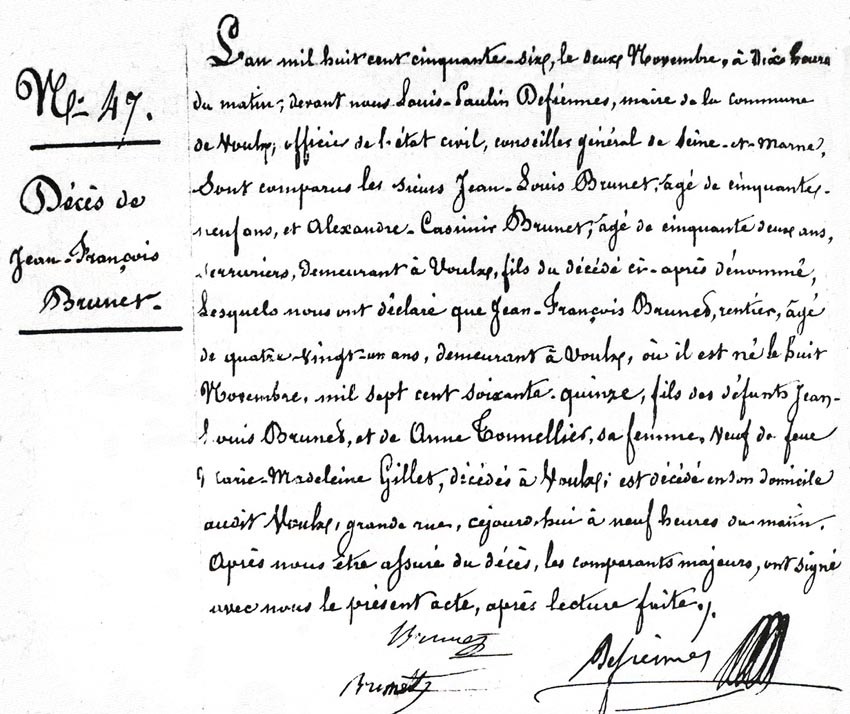 N.º 47.
Décès de
Jean-François
Brunet.
L'an mil huit cent cinquante-six, le deux Novembre, à Dix heures
du matin; devant nous Louis-Paulin Defiennes, maire de la commune
de Voulx, officier de l'état civil, conseiller général de Seine-et-Marne,
Sont comparus les sieurs Jean-Louis Brunet, âgé de cinquante-
neuf ans, et Alexandre-Casimir Brunet, âgé de cinquante deux ans,
serruriers, demeurant à Voulx, fils du décédé ci-après dénommé,
Lesquels nous ont déclaré que Jean-François Brunet, rentier, âgé
de quatre-vingt-un ans, demeurant à Voulx, où il est né le huit
Novembre, mil sept cent soixante-quinze, fils des défunts Jean-
Louis Brunet, et de Anne Tonnellier, sa femme, Veuf de feue
Marie-Madeleine Gillet, décédés à Voulx; est décédé en son domicile
audit Voulx, grande rue, cejourd'hui à neuf heures du matin.
Après nous être assuré du décès, les comparants majeurs, ont signé
avec nous le présent acte, après lecture faite.
Brunet
Brunet
Defiennes